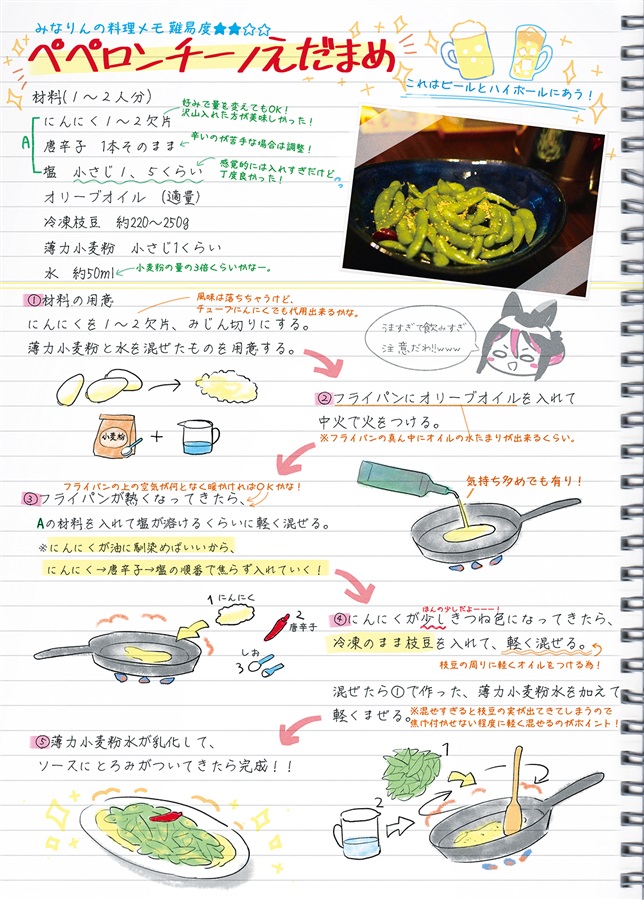 みなりんの料理メモ 難易度★★☆☆
ペペロンチーノえだまめ
これはビールとハイボールにあう!
材料(1〜2人分)
好みで量を変えてもOK!
沢山入れた方が美味しかった!
A
にんにく1〜2欠片
唐辛子 1本そのまま
辛いのが苦手な場合は調整!
塩 小さじ1、5くらい
感覚的には入れすぎだけど
丁度良かった!
オリーブオイル (適量)
冷凍枝豆 約220〜250g
薄力小麦粉 小さじ1くらい
水 約50ml
小麦粉の量の3倍くらいかなー。
①材料の用意
風味は落ちちゃうけど、
チューブにんにくでも代用出来るかな。
にんにくを1〜2欠片、みじん切りにする。
薄力小麦粉と水を混ぜたものを用意する。
うますぎて飲みすぎ
注意だわ!!www
小麦粉
+
②フライパンにオリーブオイルを入れて
中火で火をつける。
※フライパンの真ん中にオイルの水たまりが出来るくらい。
気持ち多めでも有り!
フライパンの上の空気が何となく暖かければOKかな!
③フライパンが熱くなってきたら、
Aの材料を入れて塩が溶けるくらいに軽く混ぜる。
※にんにくが油に馴染めばいいから、
にんにく→唐辛子→塩の順番で焦らず入れていく!
1 にんにく
2
唐辛子
しお
3
ほんの少しだよーーー!
④にんにくが少しきつね色になってきたら、
冷凍のまま枝豆を入れて、軽く混ぜる。
枝豆の周りに軽くオイルをつける為!
混ぜたら①で作った、薄力小麦粉水を加えて
軽くまぜる。
※混ぜすぎると枝豆の実が出てきてしまうので
焦げ付かせない程度に軽く混ぜるのがポイント!
1
2
⑤薄力小麦粉水が乳化して、
ソースにとろみがついてきたら完成!!